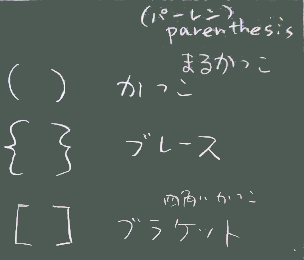 (パーレン)
parenthesis
まるかっこ
( ) かっこ
{ } ブレース
四角いかっこ
[ ] ブラケット